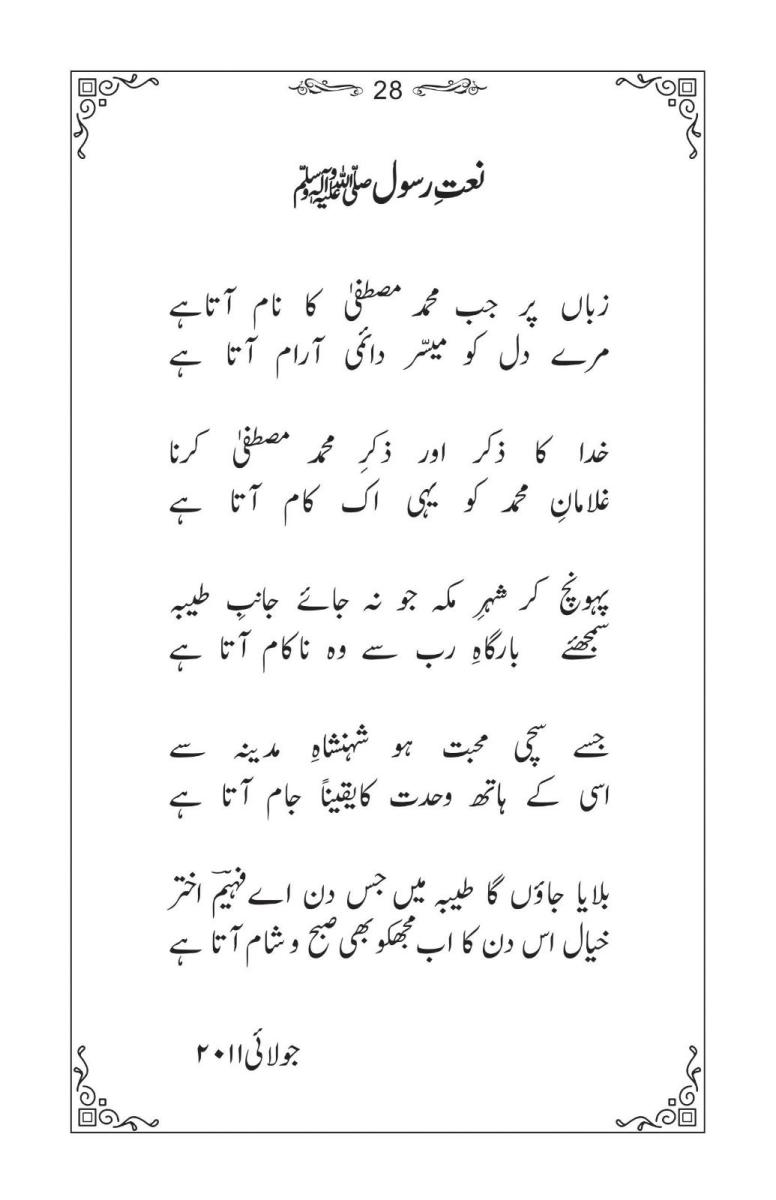 28
نعتِ رسول صلی اللہ علیہ وآلہ وسلم
زباں پر جب محمد مصطفیٰ کا نام آتاہے
مرے دل کو میسّر دائمی آرام آتا ہے
خدا کا ذکر اور ذکرِ محمد مصطفیٰ کرنا
غلامانِ محمد کو یہی اک کام آتا ہے
پہونچ کر شہرِ مکہ جو نہ جائے جانبِ طیبہ
سمجھئے بارگاہِ رب سے وہ ناکام آتا ہے
جسے سچی محبت ہو شہنشاہِ مدینہ سے
اسی کے ہاتھ وحدت کایقیناً جام آتا ہے
بلایا جاؤں گا طیبہ میں جس دن اے فہیمؔ اختر
خیال اس دن کا اب مجھکو بھی صبح و شام آتا ہے
جولائی۲۰۱۱